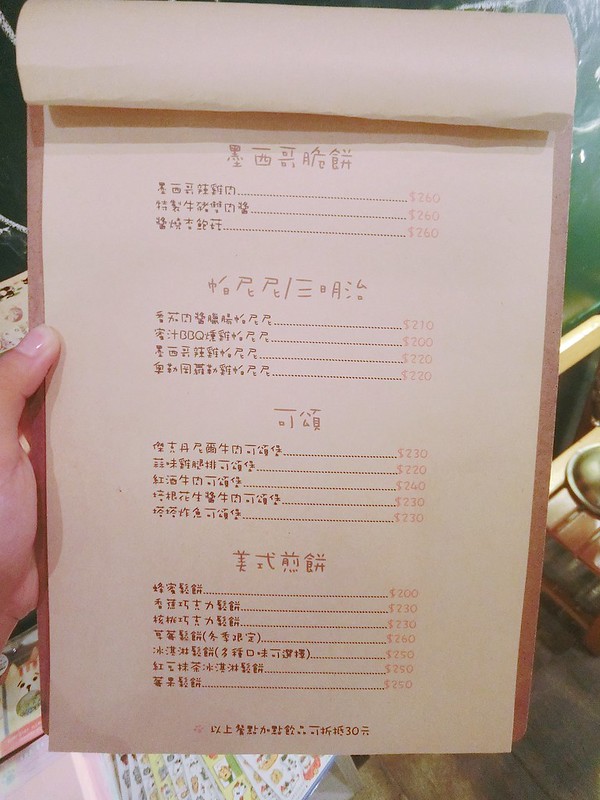 墨西哥脆餅
墨西哥辣雞肉 $260
特製牛豬雙肉醬 $260
醬燒杏鮑菇 $260
帕尼尼/三明治
番茄肉醬臘腸帕尼尼 $210
蜜汁BBQ燻雞帕尼尼 $200
墨西哥辣雞帕尼尼 $220
奧勒岡羅勒雞帕尼尼 $220
可頌
傑克丹尼爾牛肉可頌堡 $230
蒜味雞腿排可頌堡 $220
紅酒牛肉可頌堡 $240
培根花生醬牛肉可頌堡 $230
塔塔炸魚可頌堡 $230
美式煎餅
蜂蜜鬆餅 $200
香蕉巧克力鬆餅 $230
核桃巧克力鬆餅 $230
草莓鬆餅(冬季限定) $260
冰淇淋鬆餅(多種口味可選擇) $250
紅豆抹茶冰淇淋鬆餅 $250
莓果鬆餅 $250
※ 以上餐點加點飲品可折抵30元